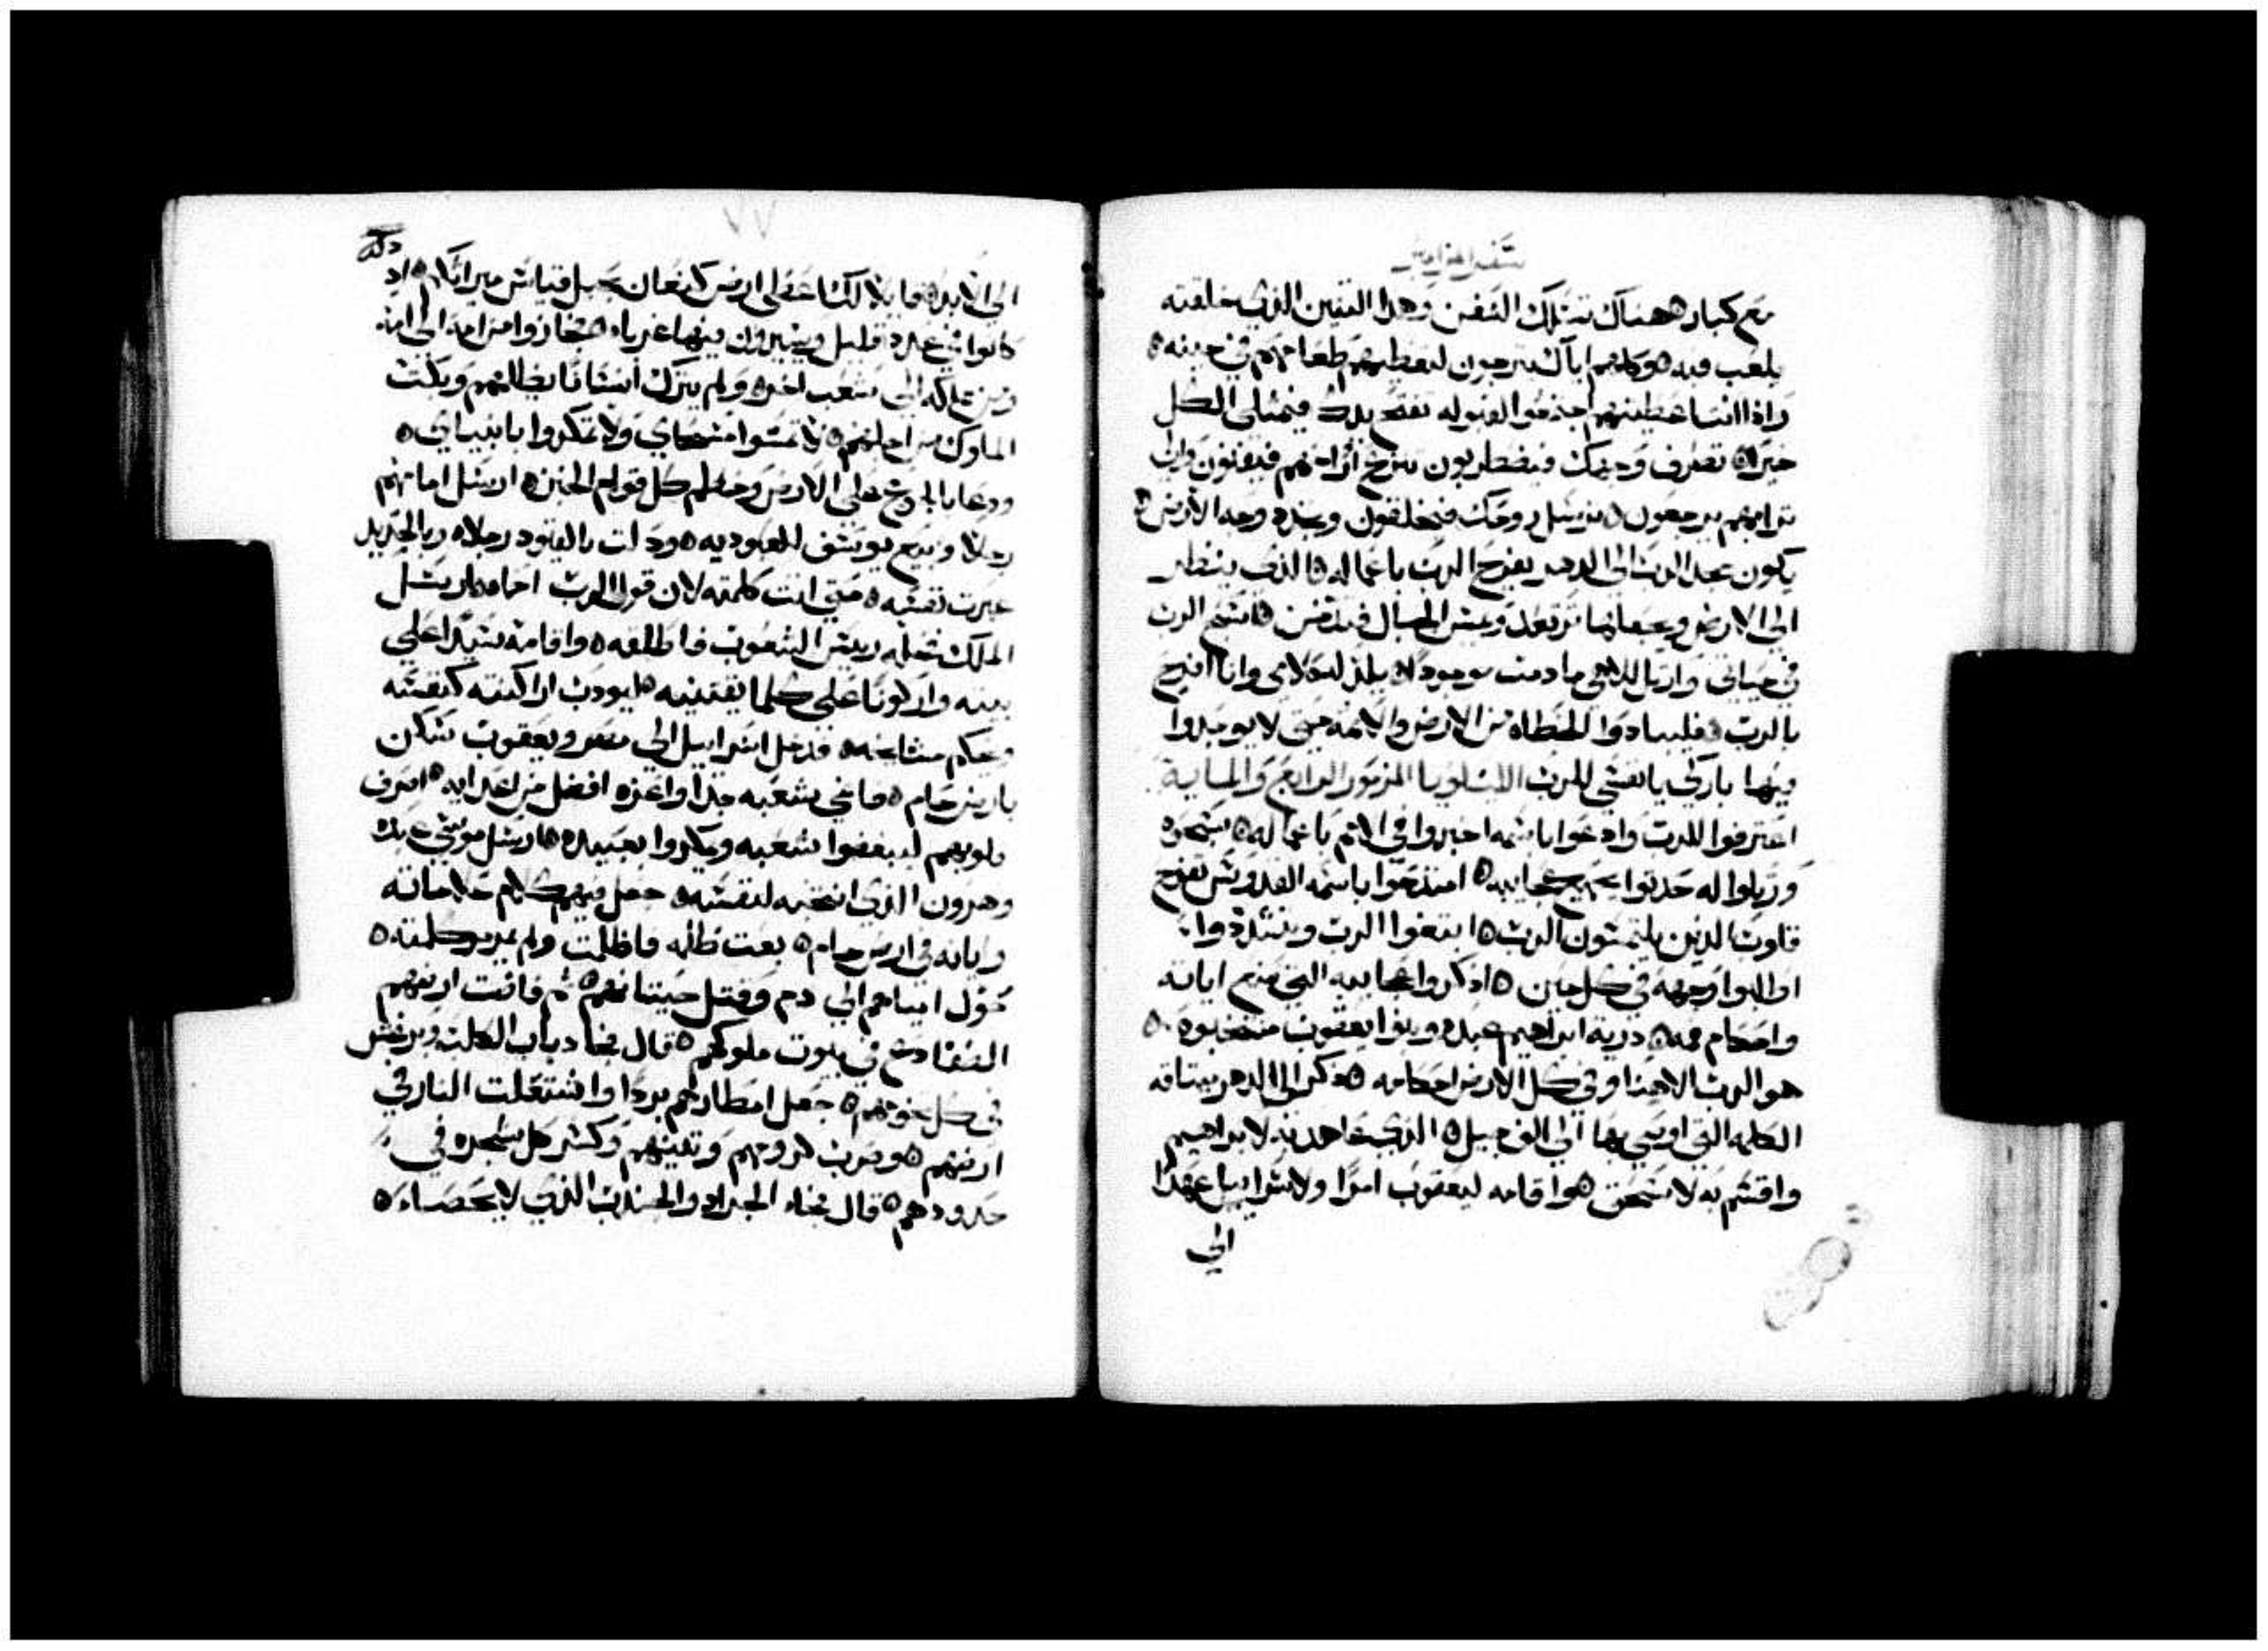 سفر المزامير
مع كبار ۞ هناك تسلك السفن وهدا التنين الدي خلقته
يلعب فيه ۞ وكلهم اياك يترجون لتعطيهم طعامهم في حينه ۞
واذا انت اعطيتهم جمعوا القبوله تفتح يدك فيمتلى الكل
خيرا ۞ تصرف وجهك فيضطربون تنزع ارواحهم فيفنون والى
ترابهم يرجعون ۞ ترسل روحك فيخلقون وتجدد وجه الارض ۞
يكون مجد الرب الى الدهر يفرح الرب باعماله ۞ الذي ينظر
الى الارض ويجعلها ترتعد ويمس الجبال فتدخن ۞ اسبح الرب
في حياتي وارتل لالاهي ما دمت موجودا ۞ يلذ له كلامي وانا افرح
بالرب ۞ فليبادوا الخطاه من الارض والاثمه حتى لا يوجدوا
فيها باركي يا نفسي للرب الليلويا المزمور الرابع والمايه
اعترفوا للرب وادعوا باسمه اخبروا في الامم باعماله ۞ سبحوه
ورتلوا له حدثوا بجميع عجايبه ۞ امتدحوا باسمه القدوس تفرح
قلوب الذين يلتمسون الرب ۞ ابتغوا الرب وتشددوا
اطلبوا وجهه في كل حين ۞ اذكروا عجايبه التي صنع اياته
واحكام فمه ۞ ذرية ابراهيم عبده وبنوا يعقوب منتخبوه ۞
هو الرب الاهنا وفي كل الارض احكامه ۞ ذكر الى الدهر ميتاقه
الكلمه التي اوصى بها الى الف جيل ۞ الذي عاهد به لابراهيم
واقسم به لاسحق ۞ واقامه ليعقوب امرا ولاسرائيل عهدا
الي
٧٧
الى الابد ۞ قايلا لك اعطي ارض كنعان حبل قياس ميراثكم ۞ اد
كانوا في عدد قليل ويسيرون فيها غرباء ۞ جازوا من امه الى امه
ومن مملكه الى شعب اخر ۞ ولم يترك انسانا يظلمهم وبكت
الملوك من اجلهم ۞ لا تمسوا مسحاي ولا تمكروا بانبياي ۞
ودعا بالجوع على الارض وحطم كل قوام الخبز ۞ ارسل امامهم
رجلا وبيع يوسف للعبوديه ۞ ودلت بالقيود رجلاه وبالحديد
عبرت نفسه ۞ حتى اتت كلمته لان قول الرب احماه ۞ ارسل
الملك فحله رييس الشعوب فاطلقه ۞ واقامه سيدا على
بيته واركونا على كلما يقتنيه ۞ ليودب اراكنته كنفسه
ويحكم مشايخه ۞ فدخل اسراييل الى مصر ويعقوب سكن
بارض حام ۞ فانمي شعبه جدا واعزه افضل من اعدايه ۞ اصرف
قلوبهم ليبغضوا شعبه ومكروا بعبيده ۞ ارسل موسى عبده
وهرون الذي انتخبه لنفسه ۞ جعل فيهم كلام علاماته
واياته في ارض حام ۞ بعت ظلمه فاظلمت ولم يمرمروا كلمته ۞
تحول امياههم الى دم وقتل حيتانهم ۞ ثم فاضت ارضهم
الضفادع في بيوت ملوكهم ۞ قال فجا دباب الكلب وبرغش
في كل تخومهم ۞ جعل امطارهم بردا واشتعلت النار في
ارضهم ۞ وضرب كرومهم وتينهم وكسر كل شجره في
حدودهم ۞ قال فجاء الجراد والجندب الذي لا يحصاء ۞